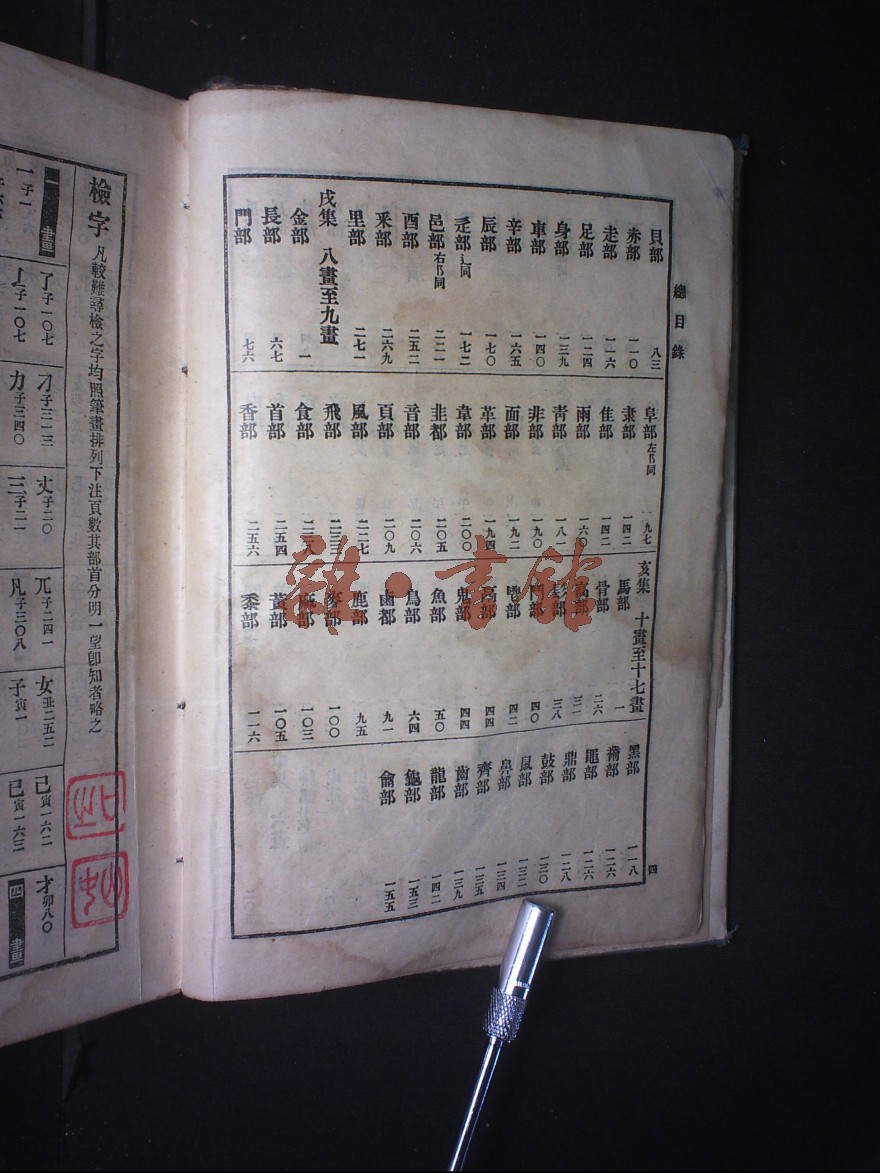 總目錄
貝部 八三
赤部 一一〇
走部 一一六
足部 一二四
身部 一三九
車部 一四〇
辛部 一六五
辰部 一七〇
辵部 辶同 一七二
邑部 右阝同 二二一
酉部 二五二
釆部 二六九
里部 二七一
戌集 八畫至九畫
金部 一
長部 六七
門部 七六
阜部 左阝同 一九七
隶部 一四二
隹部 一四二
雨部 一六〇
靑部 一八一
非部 一九〇
面部 一九二
革部 一九四
韋部 二〇〇
韭都 二〇五
音部 二〇六
頁部 二〇九
風部 二二七
飛部 二三三
食部
首部 二五四
香部 二五六
亥集 十畫至十七畫
馬部 一
骨部 二六
高部 三一
髟部 三八
鬥部 四〇
鬯部 四二
鬲部 四四
鬼部 四四
魚部 五〇
鳥部 六四
鹵都 九一
鹿部 九五
麥部 一〇〇
麻部 一〇三
黃部 一〇五
黍部 一一六
黑部 一一八
黹部 一二六
黽部 一二六
鼎部 一二八
鼓部 一三〇
鼠部 一三二
鼻部 一三四
齊部 一三五
齒部 一三九
龍部 一四二
龜部 一五三
龠部 一五五
四
檢字 凡較難尋檢之字均照筆畫排列下注頁數其部首分明一望卽知者略之
一畫
一 子一
了 子一〇七
亅 子一〇七
刁 子三一三
力 子三四〇
丈 子二〇
三 子二一
兀 子二四一
凡 子三〇八
女 丑二五二
子 寅一
己 寅一六二
已 寅一六三
才 卯八〇
四畫
雜·書館